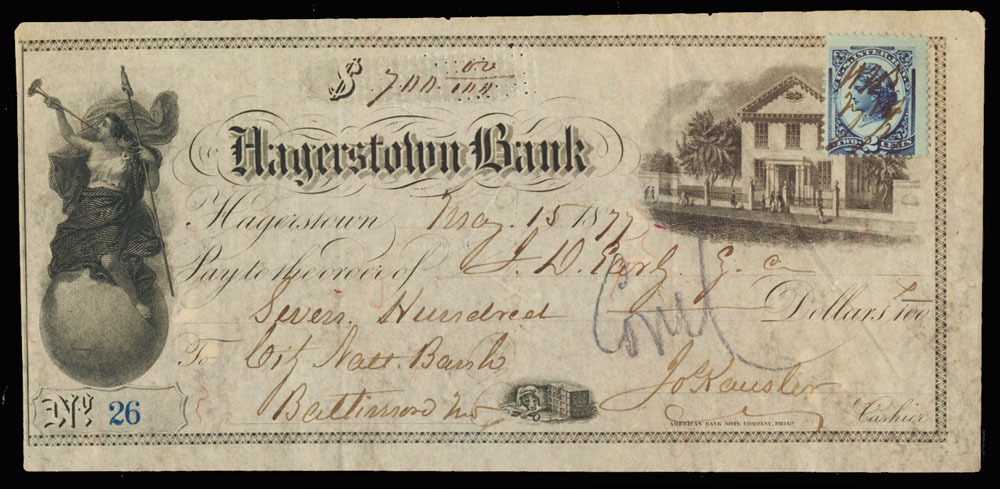 $ 700 00/100
Hagerstown Bank
Hagerstown May 15 1877
Pay to the order of J. D. Early
Seven Hundred Dollars
To City Natl. Bank
Baltimore Md
Cashier
No. 26
AMERICAN BANK NOTE COMPANY, PHILA.
U.S. INTER. REV.
TWO 2 CENTS